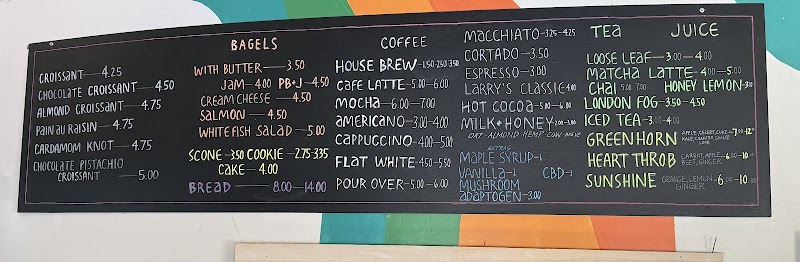 CROISSANT — 4.25
CHOCOLATE CROISSANT — 4.50
ALMOND CROISSANT — 4.75
PAIN au RAISIN — 4.75
CARDAMOM KNOT — 4.75
CHOCOLATE PISTACHIO
CROISSANT — 5.00
BAGELS
WITH BUTTER — 3.50
JAM — 4.00 PB+J — 4.50
CREAM CHEESE — 4.50
SALMON — 4.50
WHITEFISH SALAD — 5.00
SCONE — 3.50 COOKIE — 2.75-3.35
CAKE — 4.00
BREAD — 8.00 — 14.00
COFFEE
HOUSE BREW — 1.50 2.50 3.50
CAFE LATTE — 5.00 — 6.00
MOCHA — 6.00 — 7.00
AMERICANO — 3.00 — 4.00
CAPPUCCINO — 4.00 — 5.00
FLAT WHITE — 4.50 — 5.50
POUR OVER — 5.00 — 6.00
MACCHIATO — 3.25 — 4.25
CORTADO — 3.50
ESPRESSO — 3.00
LARRY'S CLASSIC 4.00
HOT COCOA — 5.00 — 6.00
MILK + HONEY — 2.00 — 3.00
OAT · ALMOND HEMP COW
EXTRAS
MAPLE SYRUP — 1
VANILLA — 1 CBD — 1
MUSHROOM
ADAPTOGEN — 3.00
TEA JUICE
LOOSE LEAF — 3.00 — 4.00
MATCHA LATTE — 4.00 — 5.00
CHAI 5.00 7.00 HONEY LEMON — 3.50
LONDON FOG — 3.50 — 4.50
ICED TEA — 3.00 — 4.00
GREENHORN APPLE, CELERY, CUKE, KALE, GINGER, LIME — 7.00 — 12.00
HEART THROB CARROT, APPLE, BEET, GINGER — 6.00 — 10.00
SUNSHINE ORANGE, LEMON, GINGER — 6.00 — 10.00